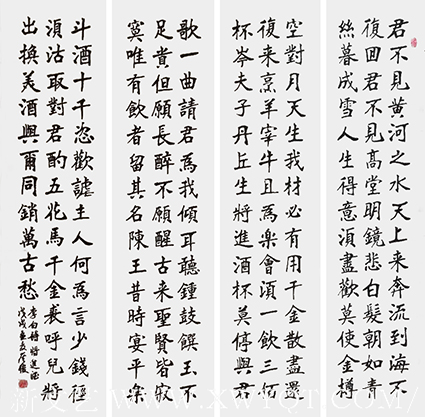 君不見黄河之水天上来奔流到海不
復回君不見高堂明鏡悲白髮朝如青
絲暮成雪人生得意湏盡歡莫使金樽
空對月天生我材必有用千金散盡還
復来烹羊宰牛且為樂會湏一飲三佰
杯岑夫子丹丘生將進酒杯莫停與君
歌一曲請君為我傾耳聽鍾鼓饌玉不
足貴但願長醉不願醒古来聖賢皆寂
寞唯有飲者留其名陳王昔時宴平樂
斗酒十千恣歡謔主人何為言少錢徑
湏沽取對君酌五花馬千金裘呼兒將
出換美酒與爾同銷萬古愁
李白詩將進酒
戊戌